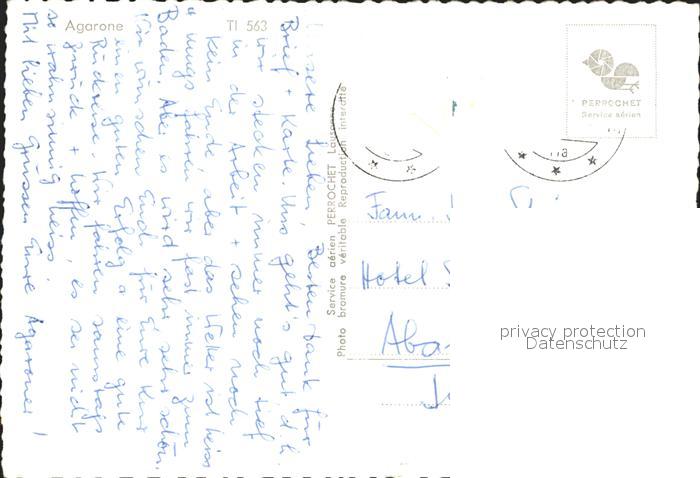 Agarone
TI 563
Unsere Lieben, Besten Dank für
Brief + Karte. Uns geht's gut, d.h.
wir stecken immer noch tief
in der Arbeit + sehen noch
kein Ende, aber das Wetter ist heiss
+ mings fahren wir fast immer zum
Baden. Aber es wird sehr sehr schön.
Wir wünschen Euch für Eure Kur
einen guten Erfolg + eine gute
Rückreise. Wir fahren samstags
zurück + hoffen, es sei nicht
so wahnsinnig heiss!
Mit lieben Grüssen Eure Agaroner!
Service aérien PERROCHET Lausanne
Photo bromure véritable Reproduction interdite
PERROCHET
Service aérien
Fam.
Hotel
Aba
privacy protection
Datenschutz